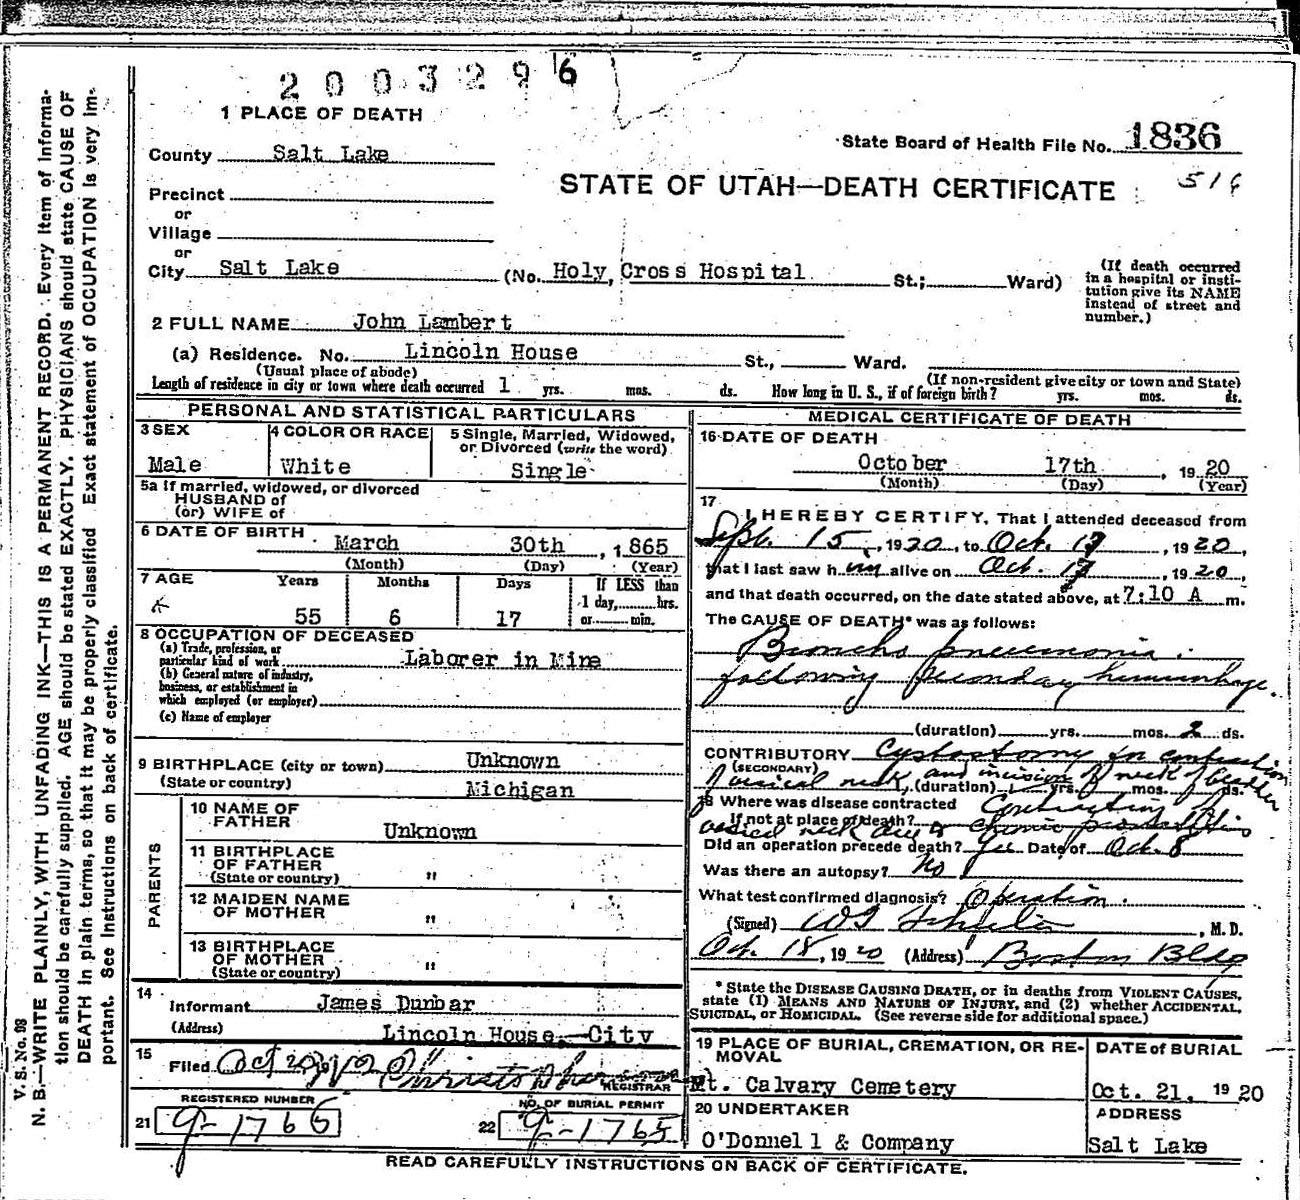 2003296
1 PLACE OF DEATH
State Board of Health File No. 1836
County Salt Lake
516
STATE OF UTAH—DEATH CERTIFICATE
Precinct
or
Village
or
City Salt Lake (No. Holy Cross Hospital St.; Ward)
(If death occurred in a hospital or insti-
tution give its NAME
instead of street and
number.)
2 FULL NAME John Lambert
(a) Residence. No. Lincoln House St., Ward.
(Usual place of abode) (If non-resident give city or town and State)
Length of residence in city or town where death occurred 1 yrs. mos. ds. How long in U. S., if of foreign birth? yrs. mos. ds.
PERSONAL AND STATISTICAL PARTICULARS
3 SEX
Male
4 COLOR OR RACE
White
5 Single, Married, Widowed,
or Divorced (write the word)
Single
5a If married, widowed, or divorced
HUSBAND of
(or) WIFE of
6 DATE OF BIRTH March 30th, 1865
(Month) (Day) (Year)
7 AGE Years Months Days If LESS than
1 day, hrs.
or min.
55 6 17
8 OCCUPATION OF DECEASED
(a) Trade, profession, or
particular kind of work Laborer in Mine
(b) General nature of industry,
business, or establishment in
which employed (or employer)
(c) Name of employer
9 BIRTHPLACE (city or town) Unknown
(State or country) Michigan
PARENTS
10 NAME OF
FATHER Unknown
11 BIRTHPLACE
OF FATHER
(State or country) "
12 MAIDEN NAME
OF MOTHER "
13 BIRTHPLACE
OF MOTHER
(State or country) "
14
Informant James Dunbar
(Address) Lincoln House, City
15
Filed Oct 20 Christopherson
REGISTRAR
REGISTERED NUMBER
21 9-1765
NO. OF BURIAL PERMIT
22 9-1765
MEDICAL CERTIFICATE OF DEATH
16 DATE OF DEATH
October 17th, 1920
(Month) (Day) (Year)
17
I HEREBY CERTIFY, That I attended deceased from
Sept. 15, 1920, to Oct. 17, 1920,
that I last saw him alive on Oct. 17, 1920,
and that death occurred, on the date stated above, at 7:10 A m.
The CAUSE OF DEATH* was as follows:
Broncho pneumonia
following secondary hemorrhage.
(duration) yrs. mos. 2 ds.
CONTRIBUTORY Cystostomy for contraction
(SECONDARY)
of vesical neck, and incision of neck of bladder
(duration) yrs. mos. ds.
18 Where was disease contracted
If not at place of death? Contraction of
vesical neck due to chronic prostatitis
Did an operation precede death? Yes Date of Oct. 8
Was there an autopsy? No
What test confirmed diagnosis? Operation.
(Signed) , M. D.
Oct. 18, 1920 (Address) Boston Bldg
* State the DISEASE CAUSING DEATH, or in deaths from VIOLENT CAUSES,
state (1) MEANS AND NATURE OF INJURY, and (2) whether ACCIDENTAL,
SUICIDAL, or HOMICIDAL. (See reverse side for additional space.)
19 PLACE OF BURIAL, CREMATION, OR RE-
MOVAL
Mt. Calvary Cemetery
DATE of BURIAL
Oct. 21, 1920
20 UNDERTAKER
O'Donnell & Company
ADDRESS
Salt Lake
READ CAREFULLY INSTRUCTIONS ON BACK OF CERTIFICATE.
V. S. No. 98
N. B.—WRITE PLAINLY, WITH UNFADING INK—THIS IS A PERMANENT RECORD. Every item of informa-
tion should be carefully supplied. AGE should be stated EXACTLY. PHYSICIANS should state CAUSE OF
DEATH in plain terms, so that it may be properly classified Exact statement of OCCUPATION is very im-
portant. See instructions on back of certificate.